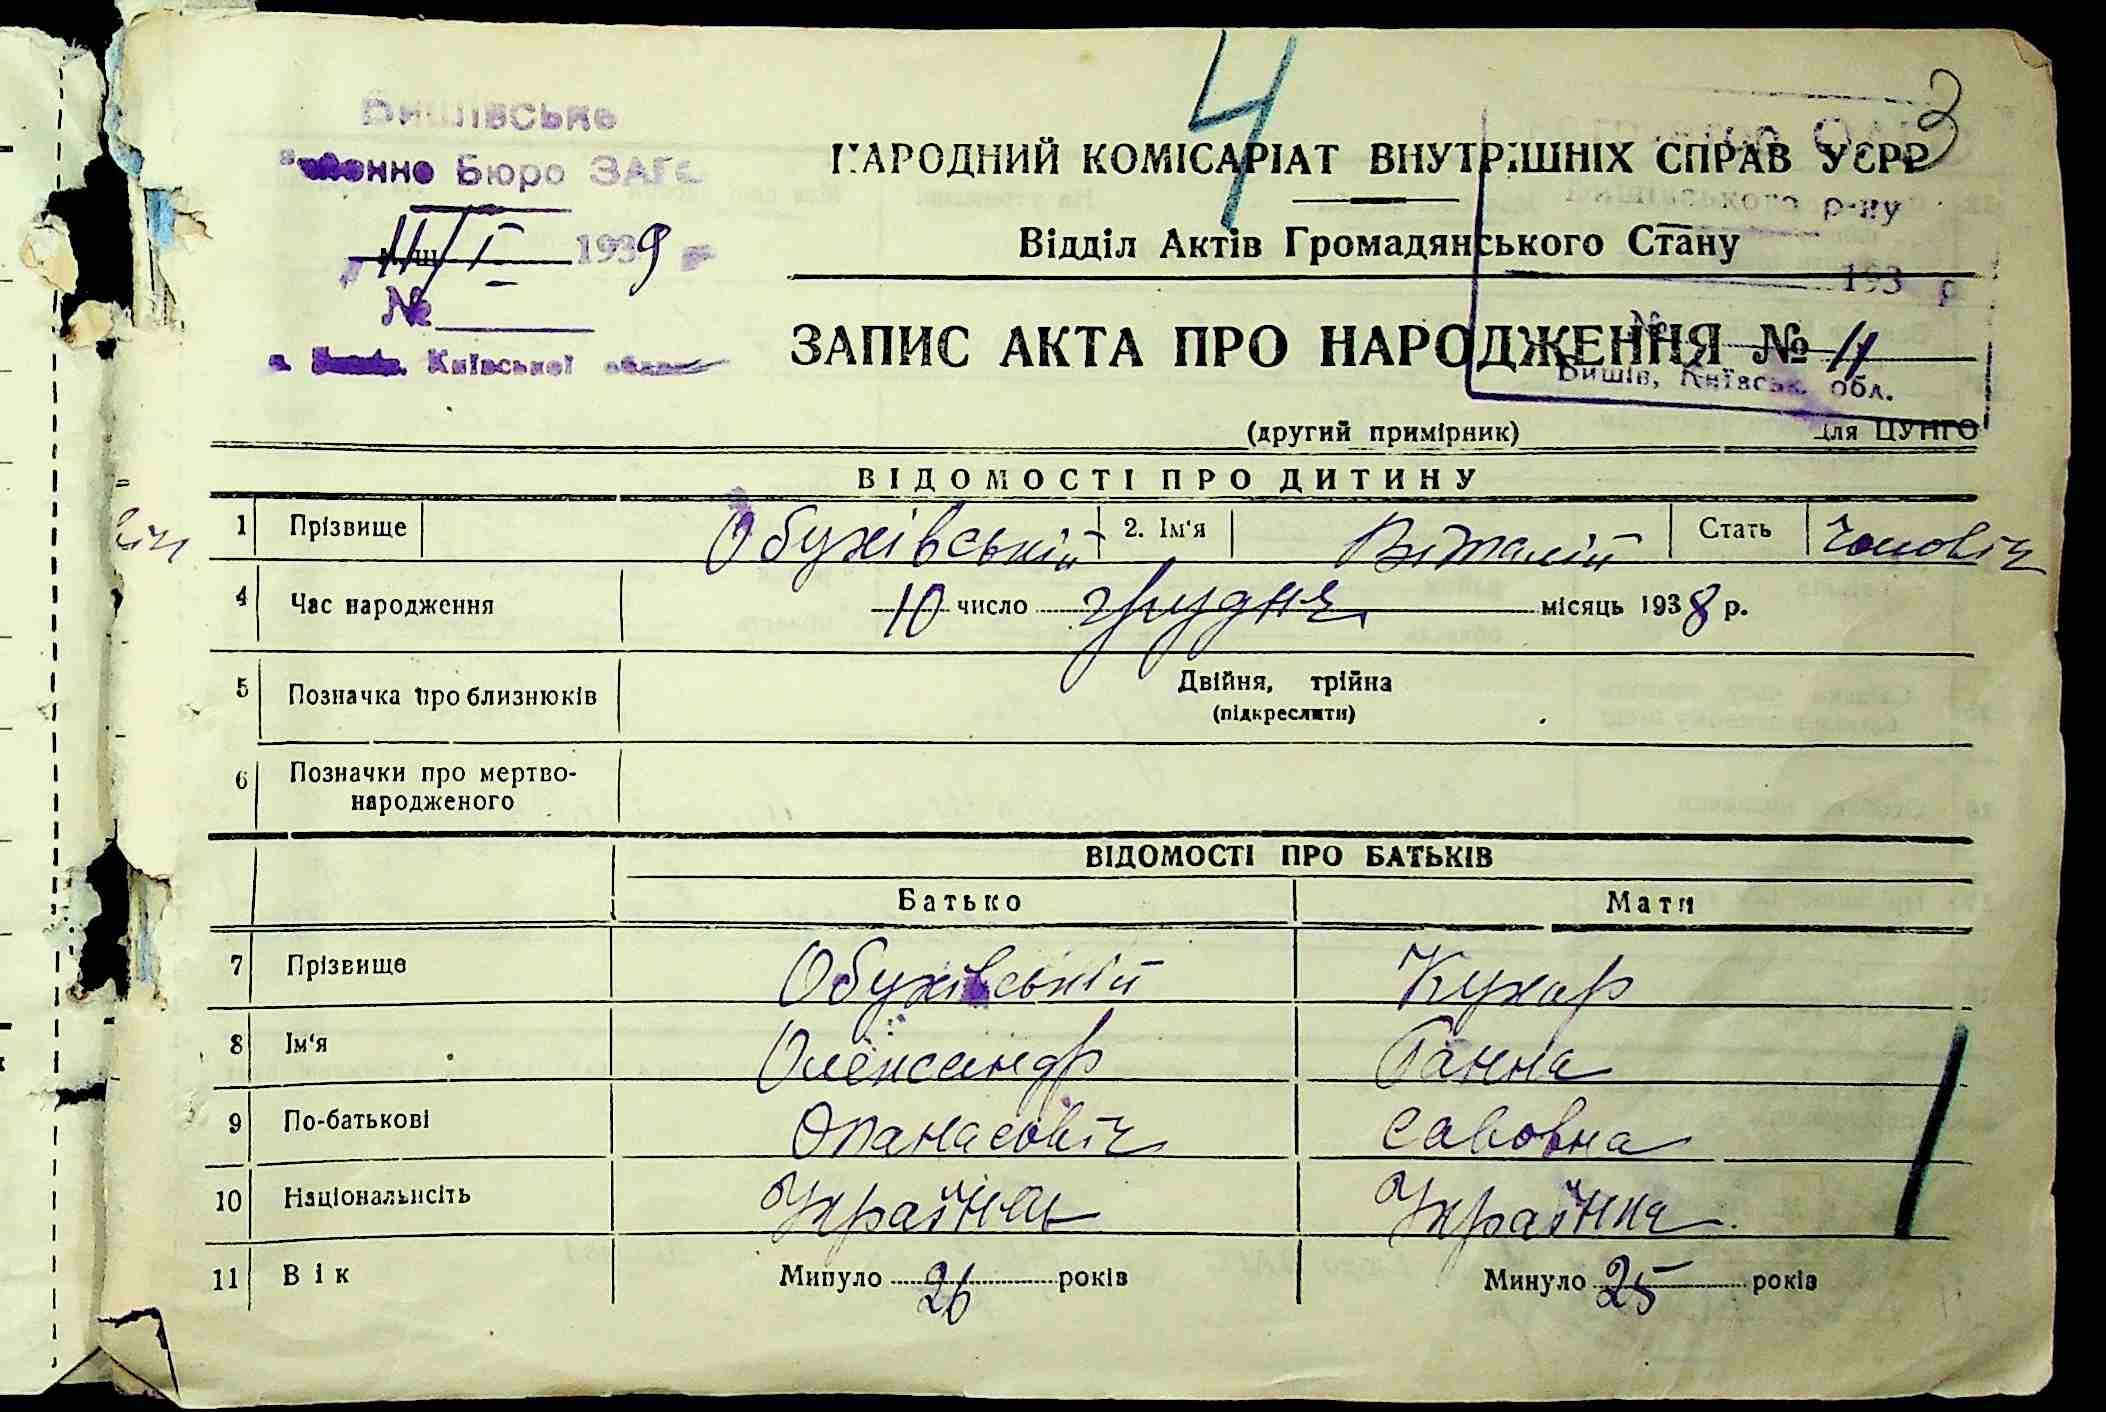 4
3
Бишівське
Бюро ЗАГС
НАРОДНИЙ КОМІСАРІАТ ВНУТРІШНІХ СПРАВ УСРР
р-ну
11/I 1939 р
Відділ Актів Громадянського Стану
193 р
№
ЗАПИС АКТА ПРО НАРОДЖЕННЯ № 11
Київської
Бишів, Київськ. обл.
(другий примірник) Для ЦУНГО
ВІДОМОСТІ ПРО ДИТИНУ
1 Прізвище Обухівський 2. Ім'я Віталій Стать Чоловіч
4 Час народження 10 число грудня місяць 1938 р.
5 Позначка про близнюків Двійня, трійна
(підкреслити)
6 Позначки про мертво-
народженого
ВІДОМОСТІ ПРО БАТЬКІВ
Батько Мати
7 Прізвище Обухівській Кухар
8 Ім'я Олександр Ганна
9 По-батькові Опанасовіч Савовна
10 Національність Українець Українка
11 Вік Минуло 26 років Минуло 25 років